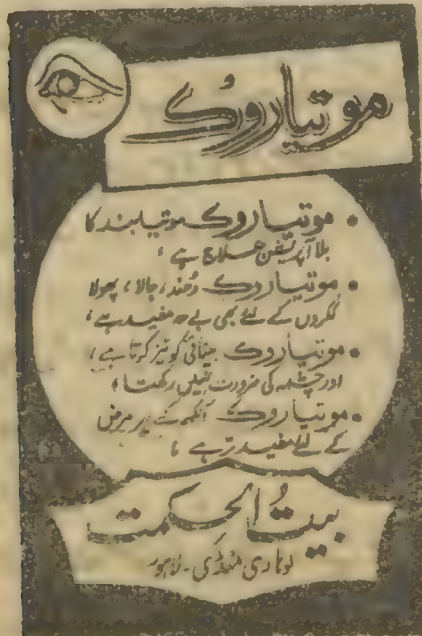 موتیا روُک
• موتیا روک موتیا بند کا
بلا آپریشن علاج ہے ؛
• موتیا روک دُھند، جالا، پھولا
ککروں کے لئے بھی بے حد مفید ہے ؛
• موتیا روک بینائی کو تیز کرتا ہے ؛
اور چشمہ کی ضرورت نہیں رکھتا ؛
• موتیا روک آنکھ کے ہر مرض
کے لئے مفید تر ہے ؛
بیتُ الحکمت
لوہاری منڈی ۔ لاہور